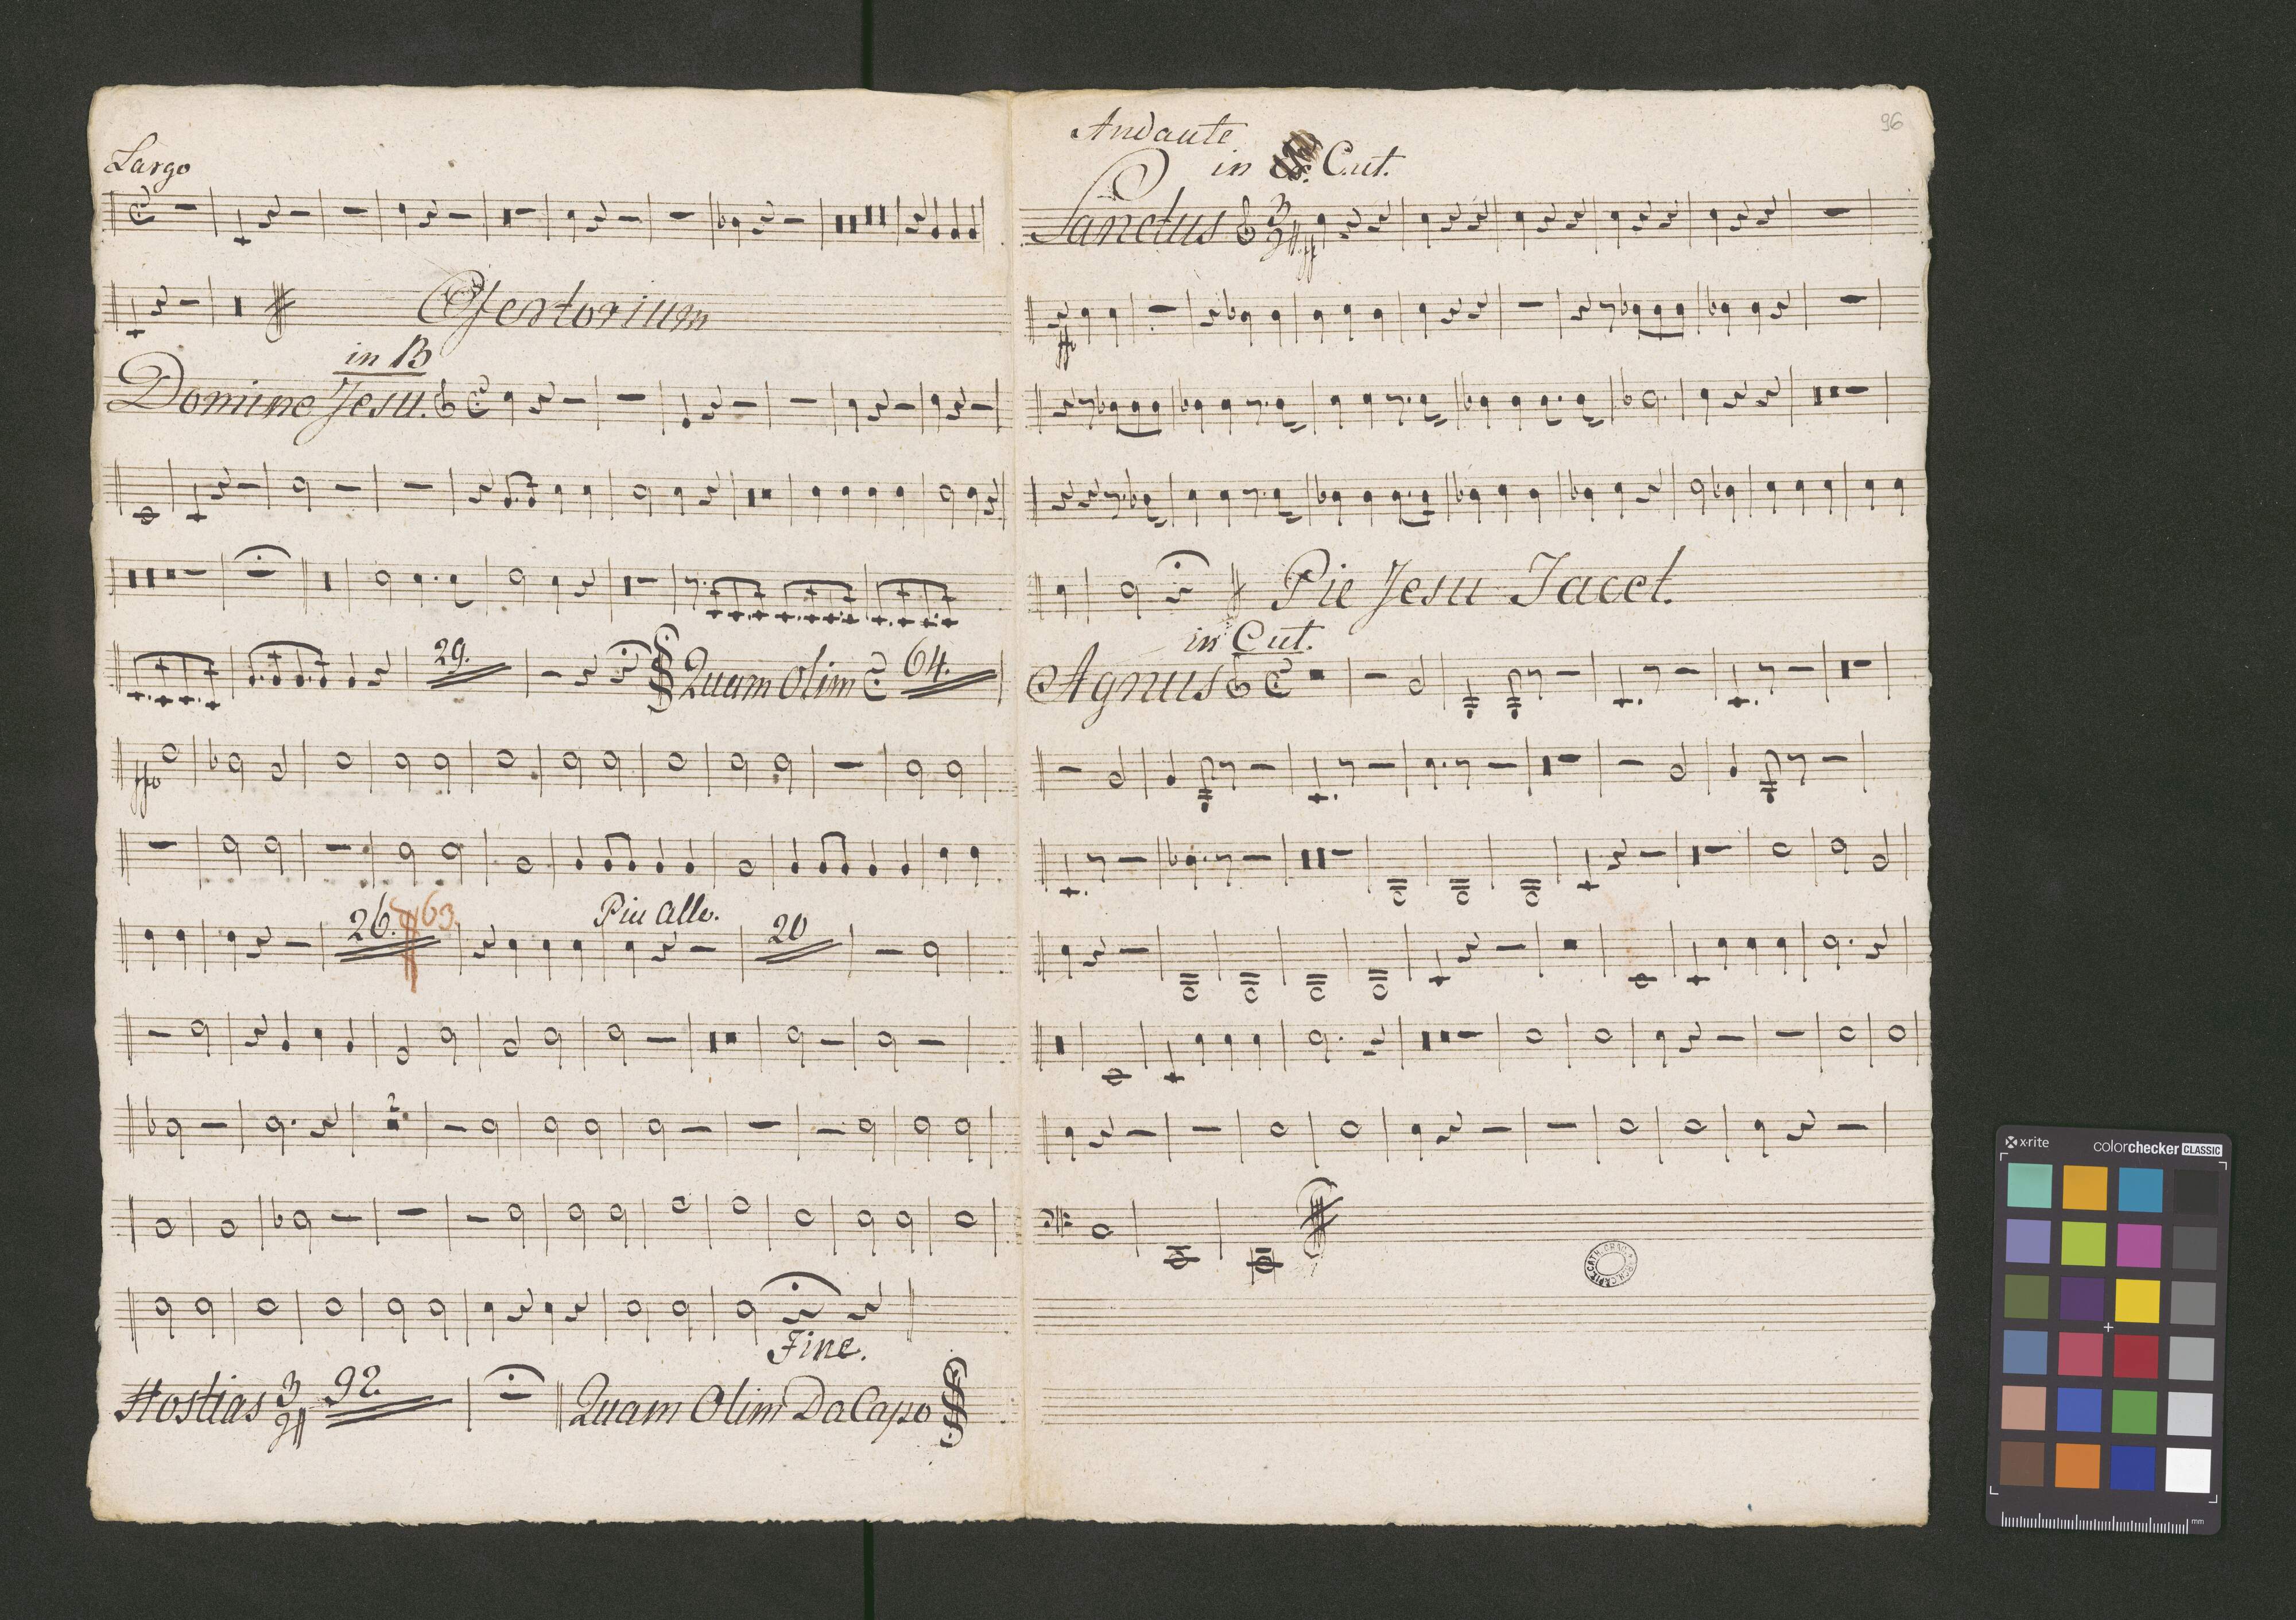 Largo
Ofertorium
in B
Domine Jesu.
29.
Quam Olim
64.
ppo
26.
63.
Piu allo.
20
2
Fine.
Hostias 3
92.
Quam Olim Da Capo
96
Andante
in
C.ut.
Sanctus 3
Pie Jesu Tacet.
in C ut.
Agnus
x-rite
colorchecker CLASSIC
mm